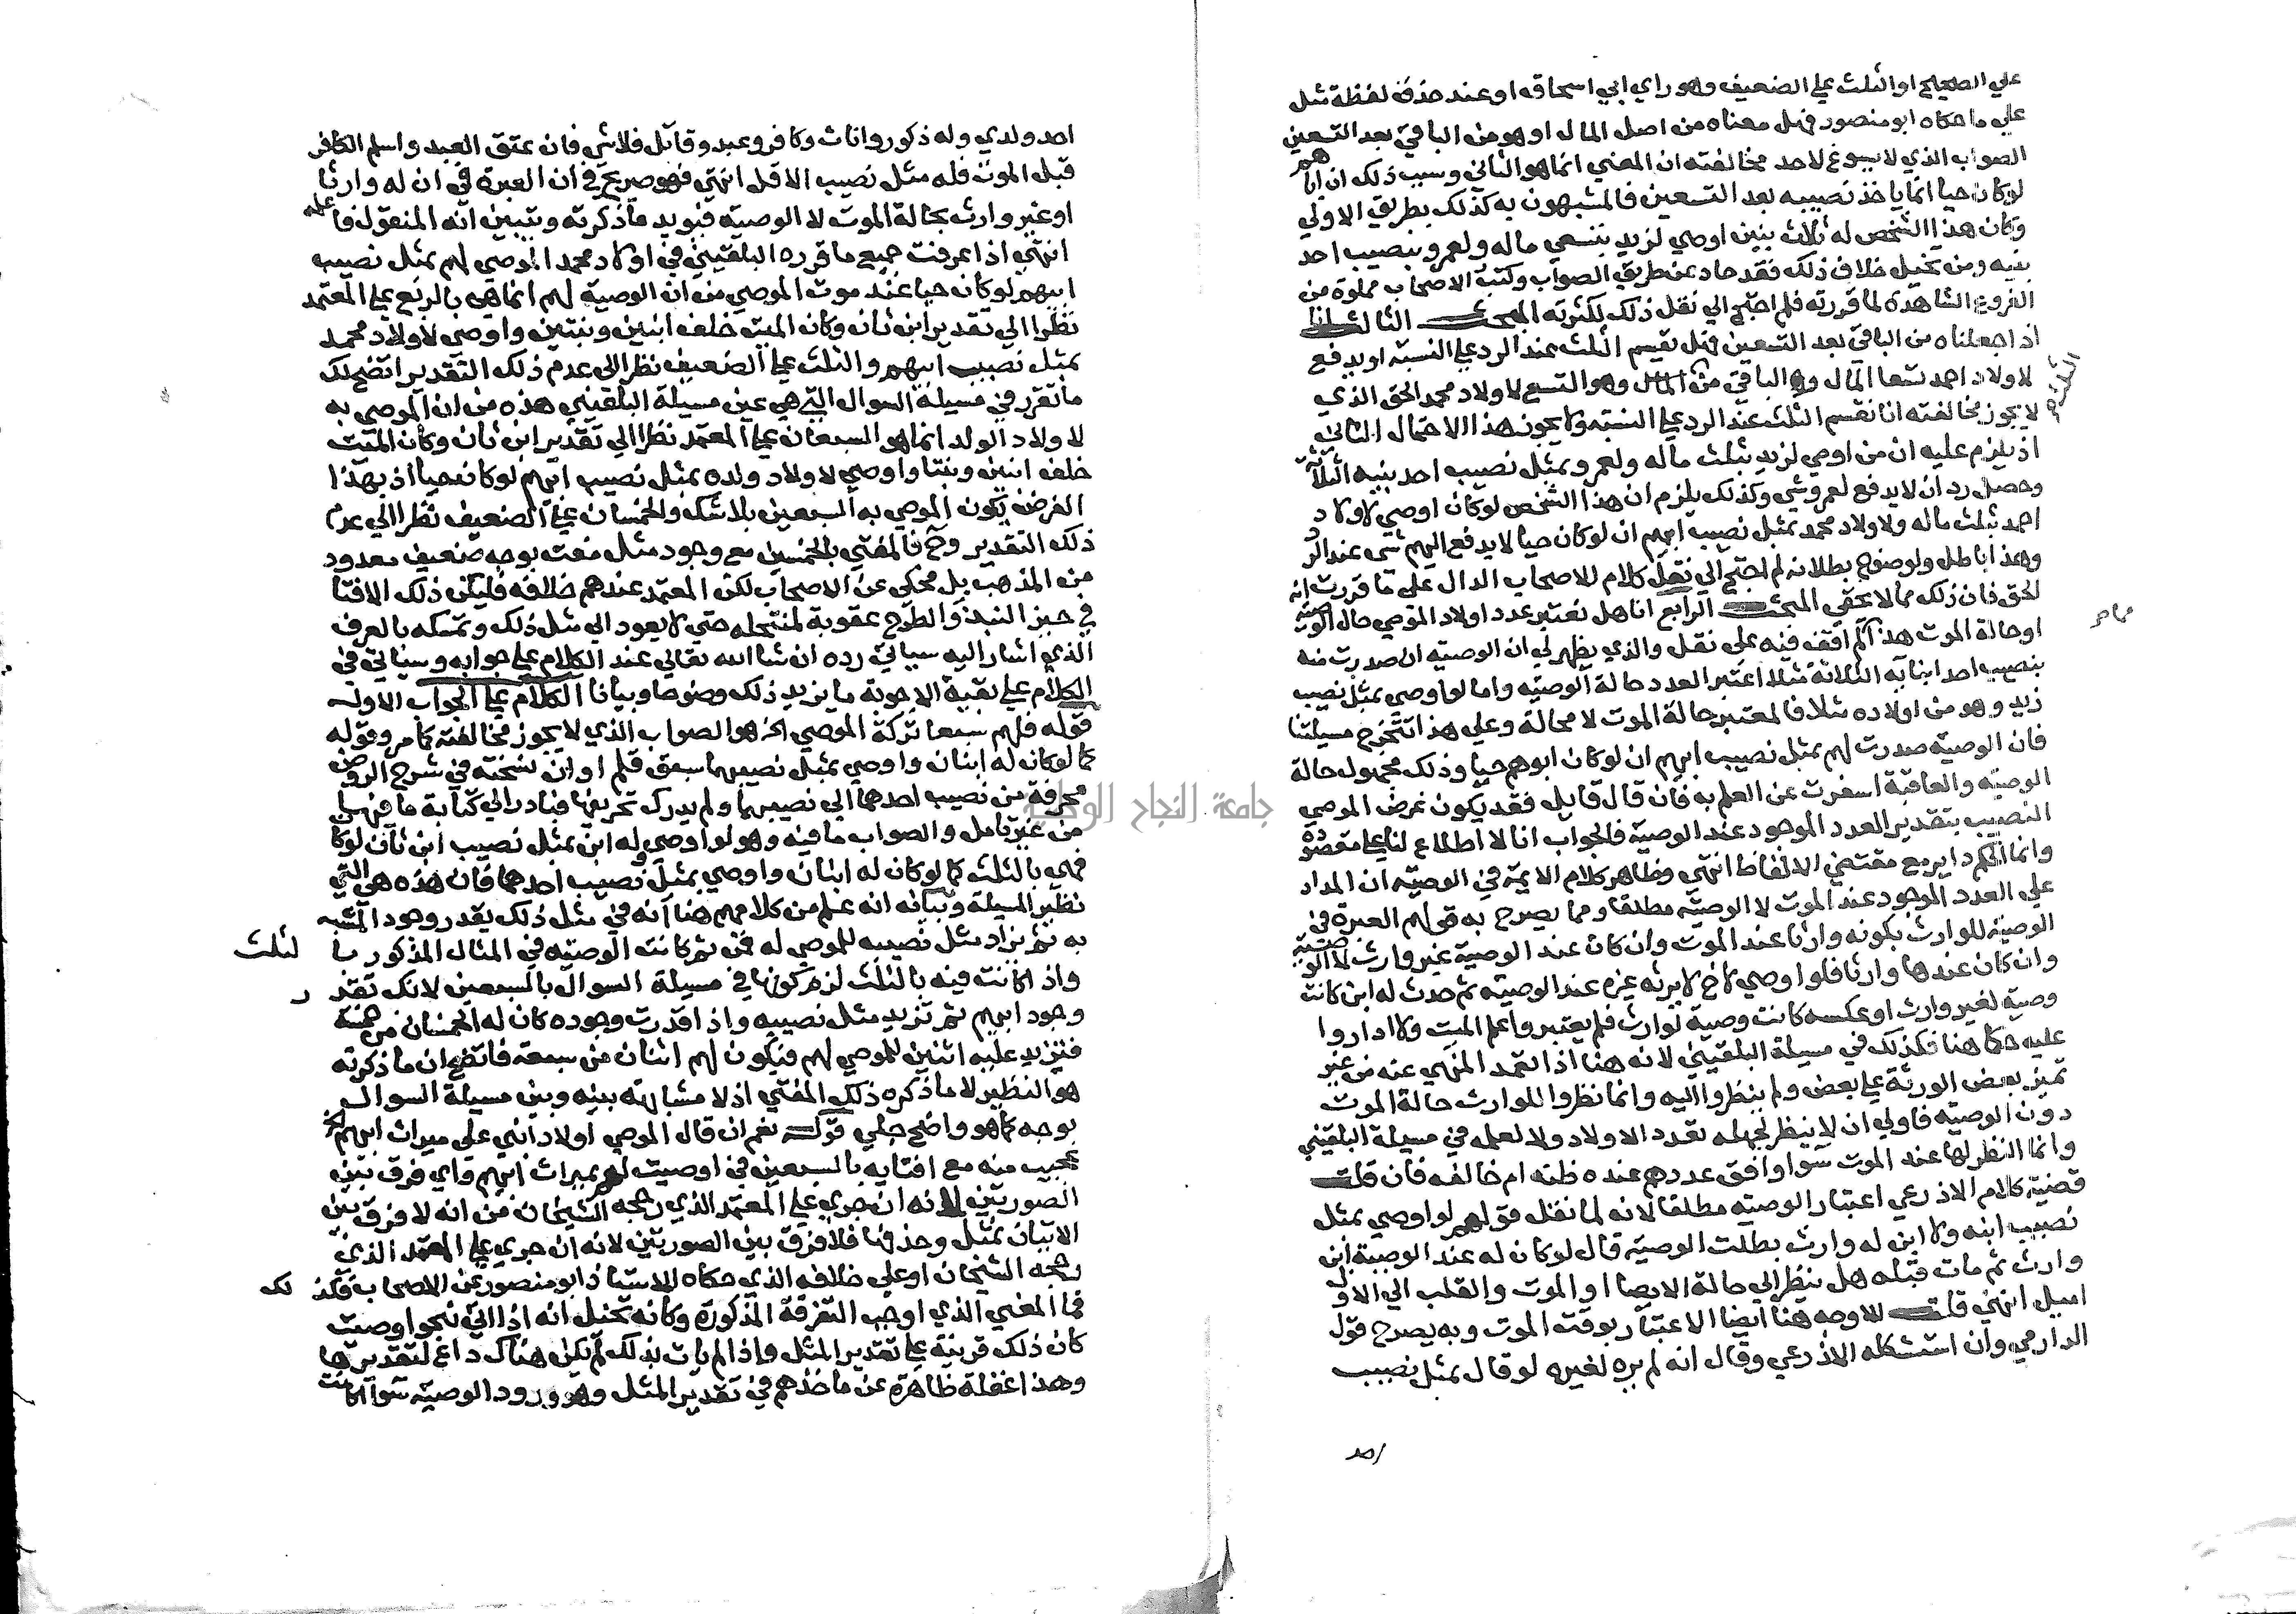 علي الصحيح او الثلث علي الضعيف وهو راي ابي اسحاق او عند حذف لفظة مثل
علي ما حكاه ابو منصور فهل معناه من اصل المال او هو من الباقي بعد التسعين
الصواب الذي لا يسوغ لاحد مخالفته ان المعني انما هو الثاني وسبب ذلك ان اباهم
لو كان حيا انما ياخذ نصيبه بعد التسعين فالمشبهون به كذلك بطريق الاولي
وكان هذا الشخص له ثلاث بنين اوصي لزيد بتسعي ماله ولعمرو بنصيب احد
بنيه ومن تخيل خلاف ذلك فقد حاد عن طريق الصواب وكتب الاصحاب مملوة من
الفروع الشاهدة لما قررته فلم احتج الي نقل ذلك لكثرته المبحث الثالث
اذا جعلناه من الباقي بعد التسعين فهل نقسم الثلث عند الرد علي النسبة او يدفع
لاولاد احمد تسعا المال والباقي من الثلث وهو التسع لاولاد محمد الحق الذي
لا يجوز مخالفته انا نقسم الثلث عند الرد علي النسبة ولا يجوز هذا الاحتمال الثاني
اذ يلزم عليه ان من اوصي لزيد بثلث ماله ولعمرو بمثل نصيب احد بنيه الثلاثة
وحصل رد ان لا يدفع لعمرو شي وكذلك يلزم ان هذا الشخص لو كان اوصي لاولاد
احمد بثلث ماله ولاولاد محمد بمثل نصيب ابيهم ان لو كان حيا لا يدفع اليهم شي عند الرد
وهذا باطل ولوضوح بطلانه لم احتج الي نقل كلام للاصحاب الدال علي ما قررت انه
الحق فان ذلك مما لا يخفي المبحث الرابع انا هل نعتبر عدد اولاد الموصي حال الوصية
او حالة الموت هذا لم اقف فيه علي نقل والذي يظهر لي ان الوصية ان صدرت منه
بنصيب احد ابنائه الثلاثة مثلا اعتبر العدد حالة الوصية واما لو اوصي بمثل نصيب
زيد وهو من اولاده مثلا فالمعتبر حالة الموت لا محالة وعلي هذا تتخرج مسيلتنا
فان الوصية صدرت لهم بمثل نصيب ابيهم ان لو كان ابوهم حيا وذلك مجهول حالة
الوصية والعاقبة اسفرت عن العلم به فان قال قايل فقد يكون غرض الموصي
النصيب بتقدير العدد الموجود عند الوصية فالجواب انا لا اطلاع لنا علي مقصوده
وانما الحكم داير مع مقتضي الالفاظ انتهي وظاهر كلام الايمة في الوصية ان المدار
علي العدد الموجود عند الموت لا الوصية مطلقا ومما يصرح به قولهم العبرة في
الوصية للوارث بكونه وارثا عند الموت وان كان عند الوصية غير وارث لا الوصية
وان كان عندها وارثا فلو اوصي لاخ لا يرثه غيره عند الوصية ثم حدث له ابن كانت
وصية لغير وارث او عكسه كانت وصية لوارث فلم يعتبروا علم الميت ولا اداروا
عليه حكما هنا فكذلك في مسيلة البلقيني لانه هنا اذا تعمد المنهي عنه من غير
تميز بعض الورثة علي بعض ولم ينظروا اليه وانما نظروا للوارث حالة الموت
دون الوصية فاولي ان لا ينظر لجهله تعدد الاولاد ولا لعلمه في مسيلة البلقيني
وانما النظر لها عند الموت سوا وافق عددهم عنده ظنه ام خالفه فان قلت
قضية كلام الاذرعي اعتبار الوصية مطلقا لانه لما نقل قولهم لو اوصي بمثل
نصيب ابنه ولا ابن له وارث بطلت الوصية قال لو كان له عند الوصية ابن
وارث ثم مات قبله هل ينظر الي حالة الايصا او الموت والقلب الي الاول
اميل انتهي قلت الاوجه هنا ايضا الاعتبار بوقت الموت وبه يصرح قول
الدارمي وان استشكله الاذرعي وقال انه لم يره لغيره لو قال بمثل نصيب
احد
احد ولدي وله ذكور واناث وكافر وعبد وقاتل فلا شي فان عتق العبد واسلم الكافر
قبل الموت فله مثل نصيب الاقل انتهي فهو صريح في ان العبرة في ان له وارثا
او غير وارث بحالة الموت لا الوصية فيويد ما ذكرته وتبين انه المنقول فاعلمه
انتهي اذا عرفت جميع ما قرره البلقيني في اولاد محمد الموصي لهم بمثل نصيب
ابيهم لو كان حيا عند موت الموصي من ان الوصية لهم انما هي بالربع علي المعتمد
نظرا الي تقدير ابن ثان وكان الميت خلف ابنين وبنتين واوصي لاولاد محمد
بمثل نصيب ابيهم والثلث علي الضعيف نظرا الي عدم ذلك التقدير اتضح لك
ما تقرر في مسيلة السوال التي هي عين مسيلة البلقيني هذه من ان الموصي به
لاولاد الولد انما هو السبعان علي المعتمد نظرا الي تقدير ابن ثان وكان الميت
خلف ابنين وبنتا واوصي لاولاد ولده بمثل نصيب ابيهم لو كان حيا اذ بهذا
الفرض يكون الموصي به السبعين بلا شك والخمسان علي الضعيف نظرا الي عدم
ذلك التقدير وح فالمفتي بالخمسين مع وجود مثل مفت بوجه ضعيف معدود
من المذهب بل محكي عن الاصحاب لكن المعتمد عندهم خلافه فليكن ذلك الافتا
في حيز النبذ والطرح عقوبة لمنتحله حتي لا يعود الي مثل ذلك وتمسكه بالعرف
الذي اشار اليه سياتي رده ان شا الله تعالي عند الكلام علي جوابه وسياتي في
الكلام علي بقية الاجوبة ما يزيد ذلك وضوحا وبيانا الكلام علي الجواب الاول
قوله فلهم سبعا تركة الموصي الخ هو الصواب الذي لا يجوز مخالفته كما مر وقوله
كما لو كان له ابنان واوصي بمثل نصيبهما سبق قلم او ان نسخته في شرح الروض
محرفة من نصيب احدهما الي نصيبهما ولم يدرك تحريفها فبادر الي كتابة ما فيها
من غير تامل والصواب ما فيه وهو لو اوصي وله ابن بمثل نصيب ابن ثان لو كان
فهي بالثلث كما لو كان له ابنان واوصي بمثل نصيب احدهما فان هذه هي التي
نظير المسيلة وبيانه انه علم من كلامهم هنا انه في مثل ذلك يقدر وجود المشبه
به ثم يزاد مثل نصيبه للموصي له فمن ثم كانت الوصية في المثال المذكور بالثلث
واذا كانت فيه بالثلث لزم كونها في مسيلة السوال بالسبعين لانك تقدر
وجود ابيهم ثم تزيد مثل نصيبه واذا قدرت وجوده كان له الخمسان من خمسة
فتزيد عليه اثنين للموصي لهم فيكون لهم اثنان من سبعة فاتضح ان ما ذكرته
هو النظير لا ما ذكره ذلك المفتي اذ لا مشابهة بينه وبين مسيلة السوال
بوجه كما هو واضح جلي قوله نعم ان قال الموصي اولاد ابني علي ميراث ابيهم الخ
عجيب منه مع افتايه بالسبعين في اوصيت لهم بميراث ابيهم واي فرق بين
الصورتين لانه ان جري علي المعتمد الذي رجحه الشيخان من انه لا فرق بين
الاتيان بمثل وحذفها فلا فرق بين الصورتين لانه ان جري علي المعتمد الذي
رجحه الشيخان او علي خلافه الذي حكاه الاستاذ ابو منصور عن الاصحاب فكذلك
فما المعني الذي اوجب التفرقة المذكورة وكانه تخيل انه اذا اتي بنحو اوصيت
كان ذلك قرينة علي تقدير المثل واذا لم يات بذلك لم يكن هناك داع لتقديرها
وهذا غفلة ظاهرة عن ماخذهم في تقدير المثل وهو ورود الوصية سوا اكانت
جامعة النجاح الوطنية